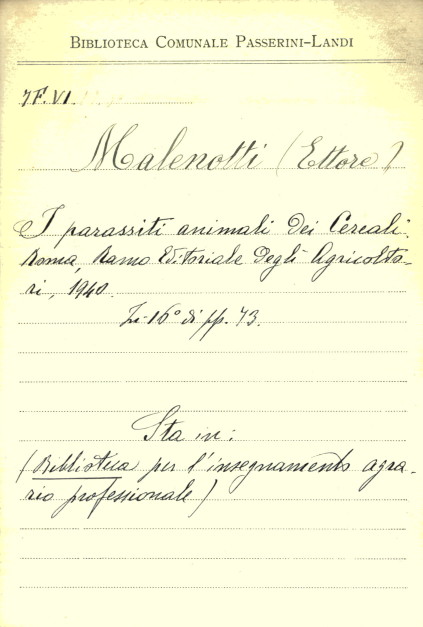 BIBLIOTECA COMUNALE PASSERINI-LANDI
7F.VI
Malenotti (Ettore)
I parassiti animali dei Cereali.
Roma, Ramo Editoriale Degli Agricolto-
ri, 1940.
In-16° di pp. 73.
Sta in:
(Biblioteca per l'insegnamento agra-
rio professionale)